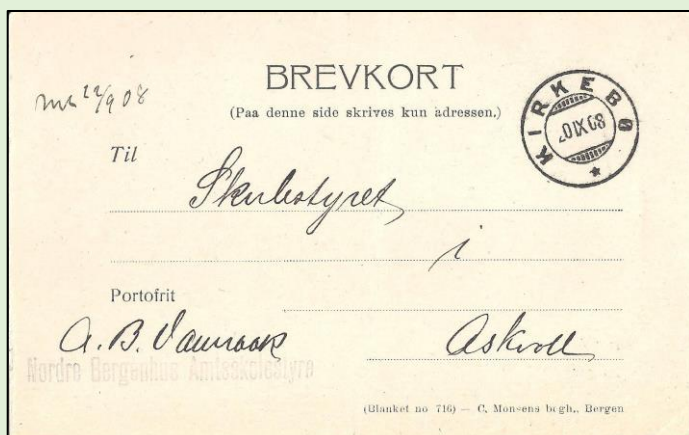 BREVKORT
(Paa denne side skrives kun adressen.)
22/9 08
KIRKEBØ
Til
Skulestyret
i
Portofrit
A. B.
Askvoll
Nordre Bergenhus Amtsskolestyre
(Blanket no 716) — C. Monsens bogh., Bergen